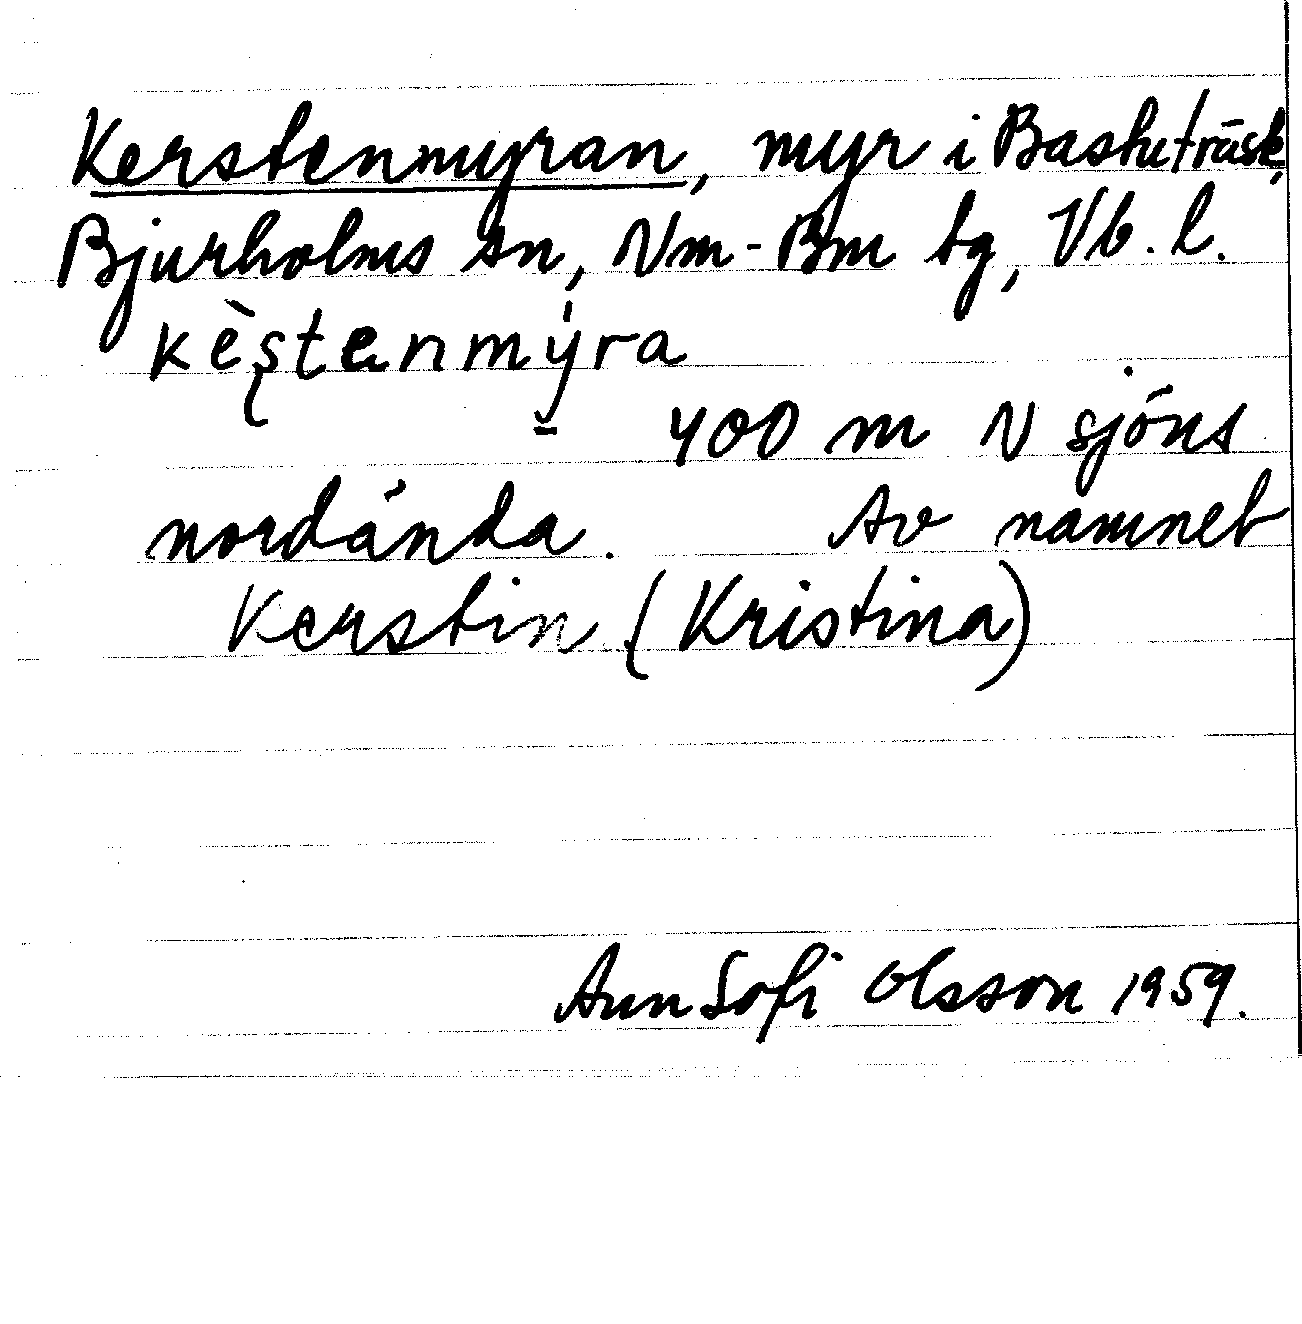 Kerstenmyran, myr i Bastuträsk,
Bjurholms sn, Nm-Bm tg, Vb. l.
kèstenmýra
400 m N sjöns
nordända. Av namnet
Kerstin (Kristina)
Ann Sofi Olsson 1959.